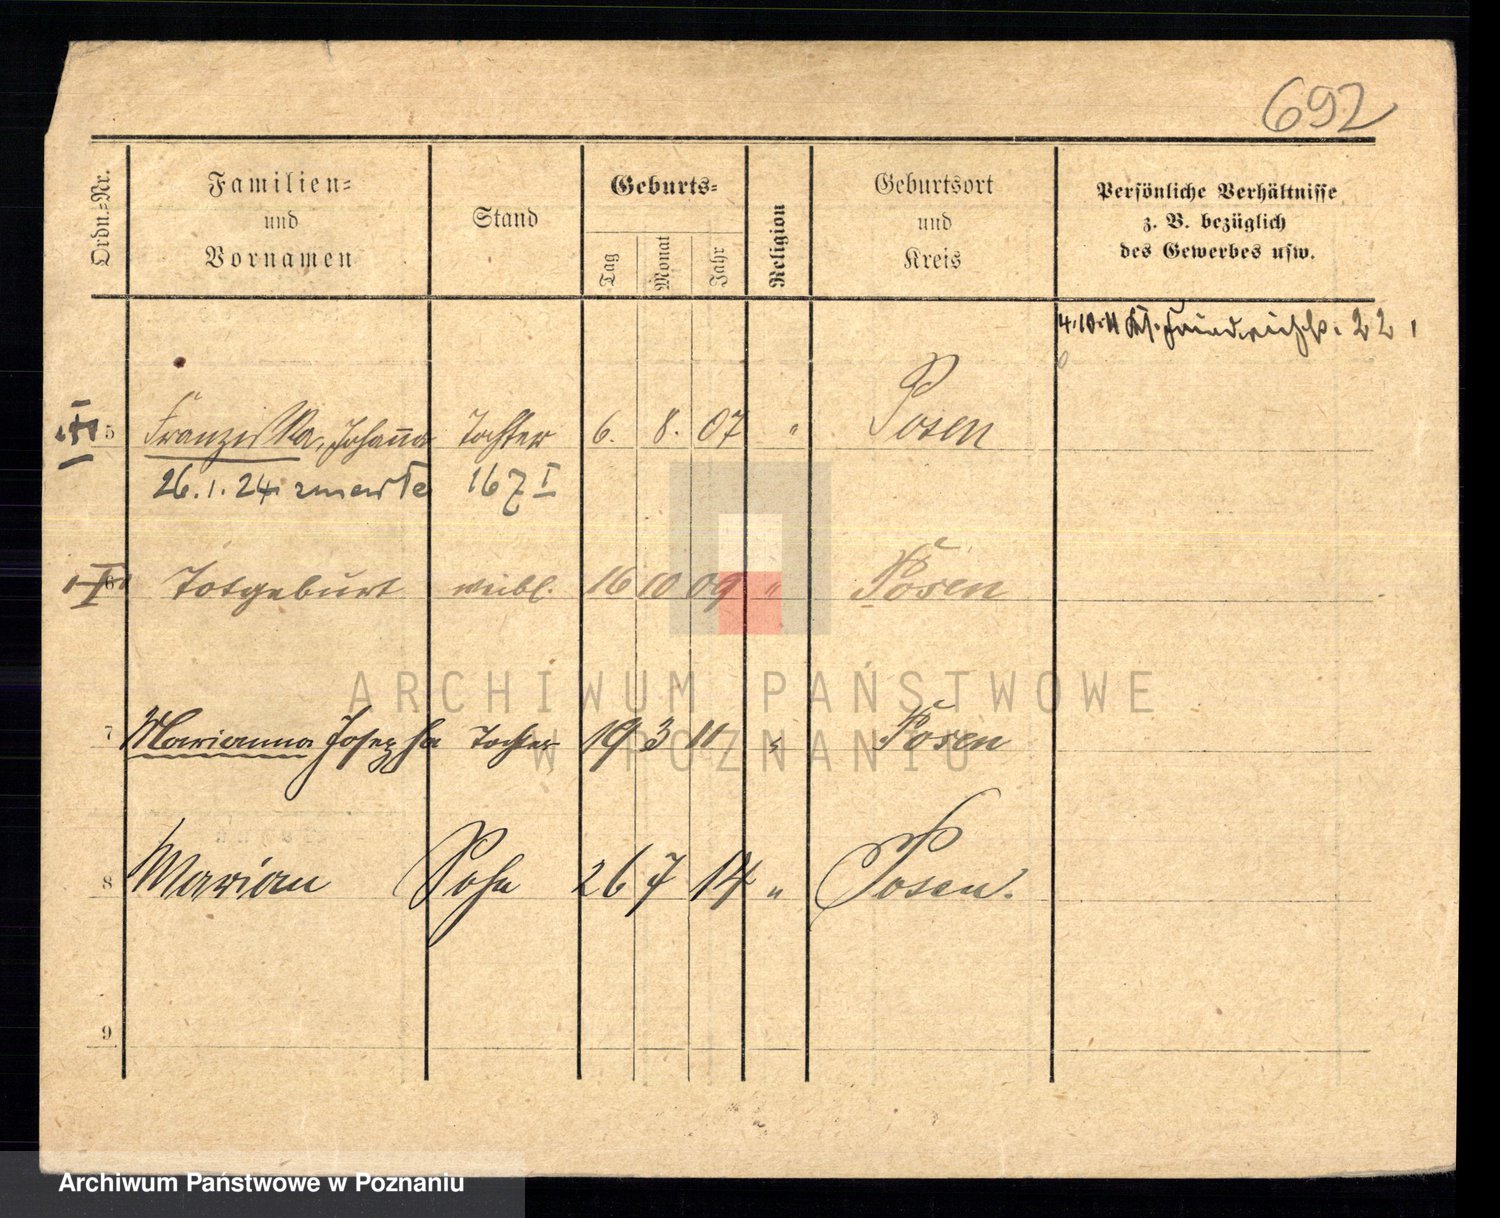 692
Ordn.-Nr.
Familien-
und
Vornamen
Stand
Geburts-
Tag
Monat
Jahr
Religion
Geburtsort
und
Kreis
Persönliche Verhältnisse
z. B. bezüglich
des Gewerbes usw.
4.10.11 Friedrichstr. 22
5 Franziska, Johanna Tochter 6. 8. 07 " Posen
26.1.24 zmarła 167 I
6 Totgeburt weibl. 16 10 09 " Posen
7 Marianna Josepha Tochter 19 3 11 " Posen
8 Marian Sohn 26 7 14 " Posen.
9
ARCHIWUM PAŃSTWOWE
W POZNANIU
Archiwum Państwowe w Poznaniu